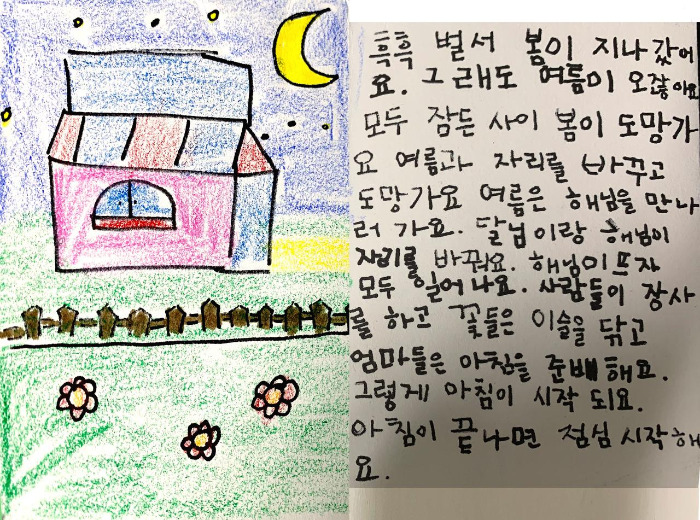 흑흑 벌서 봄이 지나갔어
요. 그래도 여름이 오잖아요
모두 잠든 사이 봄이 도망가
요 여름과 자리를 바꾸고
도망가요 여름은 해님을 만나
러 가요. 달님이랑 해님이
자리를 바꿔요. 해님이 뜨자
모두 일어나요. 사람들이 장사
를 하고 꽃들은 이슬을 닦고
엄마들은 아침을 준배해요.
그렇게 아침이 시작 되요.
아침이 끝나면 점심 시작해
요.